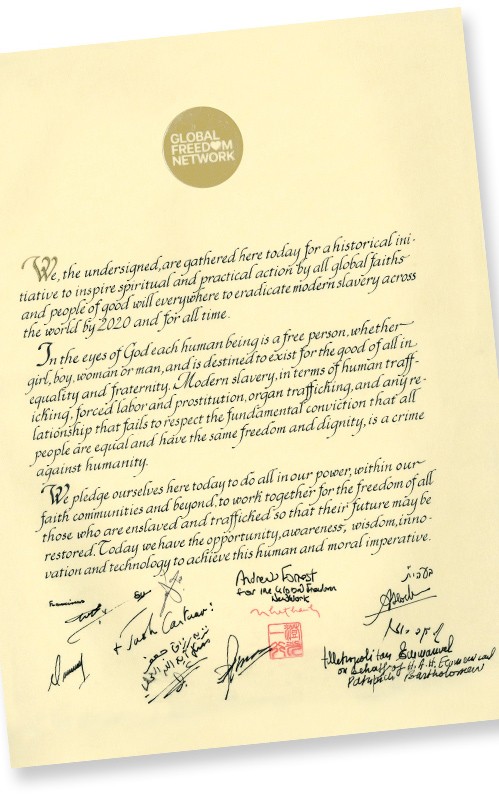 GLOBAL
FREEDOM
NETWORK
We, the undersigned, are gathered here today for a historical ini-
tiative to inspire spiritual and practical action by all global faiths
and people of good will everywhere to eradicate modern slavery across
the world by 2020 and for all time.
In the eyes of God each human being is a free person, whether
girl, boy, woman or man, and is destined to exist for the good of all in
equality and fraternity. Modern slavery, in terms of human traff-
icking, forced labor and prostitution, organ trafficking, and any re-
lationship that fails to respect the fundamental conviction that all
people are equal and have the same freedom and dignity, is a crime
against humanity.
We pledge ourselves here today to do all in our power, within our
faith communities and beyond, to work together for the freedom of all
those who are enslaved and trafficked so that their future may be
restored. Today we have the opportunity, awareness, wisdom, inno-
vation and technology to achieve this human and moral imperative.
Franciscus
Andrew Forrest
for the Global Freedom
Network
+ Justin Cantuar:
Metropolitan Emmanuel
on behalf of H.A.H. Ecumenical
Patriarch Bartholomew